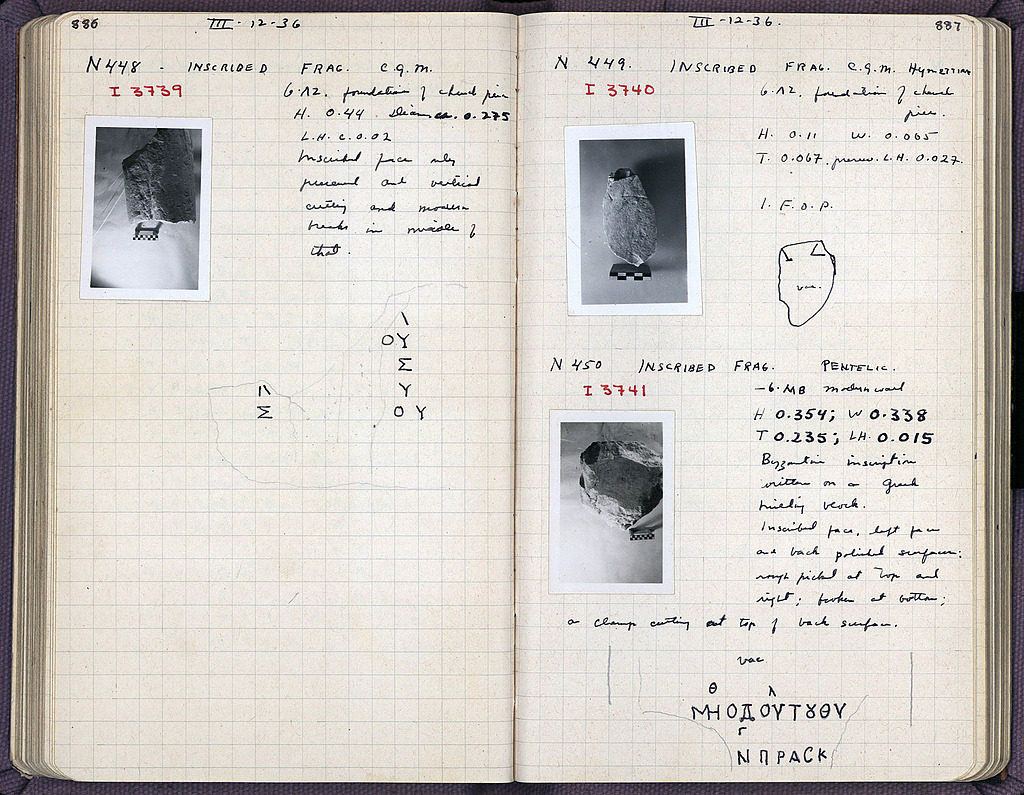 886
III - 12 - 36
N 448 - INSCRIBED FRAG. C.G.M.
I 3739
6·ΛΖ, foundation of church pier
H. 0.44 Diam. ca. 0.275
L.H. c. 0.02
Inscribed face only
preserved and vertical
cutting and modern
breaks in middle of
that.
Λ
ΟΥ
Σ
Π Υ
Σ ΟΥ
III - 12 - 36.
887
N 449. INSCRIBED FRAG. C.G.M. Hymettian
I 3740
6·ΛΖ, foundation of church
pier.
H. 0.11 W. 0.065
T. 0.067, preserv. L.H. 0.027.
1. F.O.P.
vac.
N 450 INSCRIBED FRAG. PENTELIC.
I 3741
-6·MB modern wall
H 0.354; W 0.338
T 0.235; LH. 0.015
Byzantine inscription
written on a Greek
building block.
Inscribed face, left face
and back polished surfaces;
rough picked at top and
right; broken at bottom;
a clamp cutting at top of back surface.
vac.
Θ Λ
ΜΗΟΔΟΥΤȢΘΥ
Γ
ΝΠΡΑCΚ